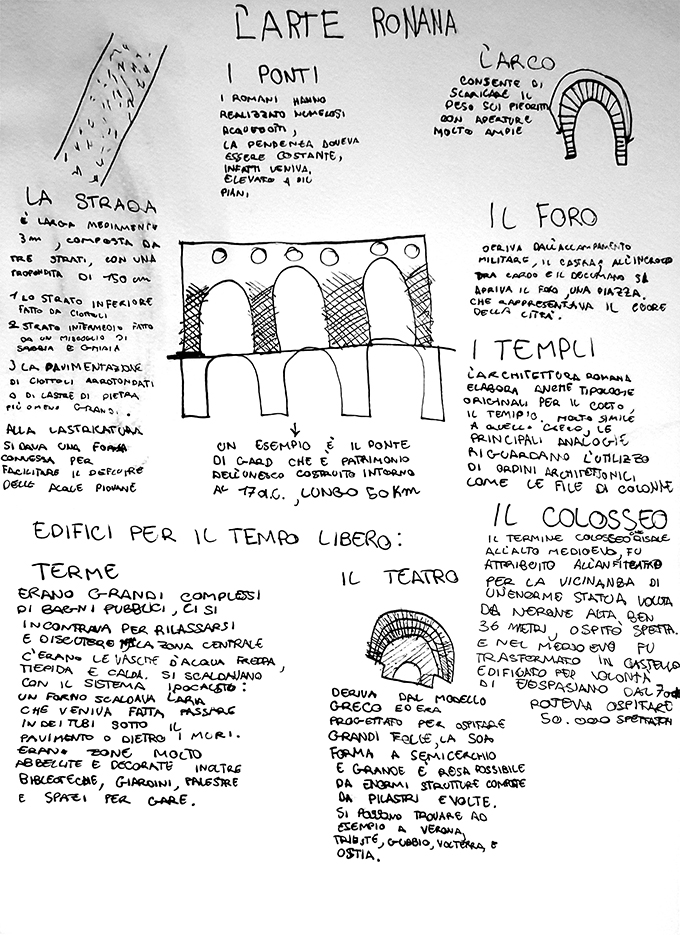 L'ARTE ROMANA
I PONTI
I ROMANI HANNO
REALIZZATO NUMEROSI
ACQUEDOTTI,
LA PENDENZA DOVEVA
ESSERE COSTANTE,
INFATTI VENIVA
ELEVATO A PIÙ
PIANI
L'ARCO
CONSENTE DI
SCARICARE IL
PESO SUI PIEDRITTI
CON APERTURE
MOLTO AMPIE
LA STRADA
È LARGA MEDIAMENTE
3m, COMPOSTA DA
TRE STRATI, CON UNA
PROFONDITÀ DI 150 cm
1 LO STRATO INFERIORE
FATTO DA CIOTTOLI
2 STRATO INTERMEDIO FATTO
DA UN MISCUGLIO DI
SABBIA E GHIAIA
3 LA PAVIMENTAZIONE
DI CIOTTOLI ARROTONDATI
O DI LASTRE DI PIETRA
PIÙ O MENO GRANDI.
ALLA LASTRICATURA
SI DAVA UNA FORMA
CONVESSA PER
FACILITARE IL DEFLUIRE
DELLE ACQUE PIOVANE
IL FORO
DERIVA DALL'ACCAMPAMENTO
MILITARE, IL CASTRA, ALL'INCROCIO
TRA CARDO E IL DECUMANO SI
APRIVA IL FORO UNA PIAZZA,
CHE RAPPRESENTAVA IL CUORE
DELLA CITTÀ.
I TEMPLI
L'ARCHITETTURA ROMANA
ELABORA ANCHE TIPOLOGIE
ORIGINALI PER IL CULTO,
IL TEMPIO. MOLTO SIMILE
A QUELLO GRECO, LE
PRINCIPALI ANALOGIE
RIGUARDANO L'UTILIZZO
DI ORDINI ARCHITETTONICI
COME LE FILE DI COLONNE
UN ESEMPIO È IL PONTE
DI GARD CHE È PATRIMONIO
DELL'UNESCO COSTRUITO INTORNO
AL 17 a.C., LUNGO 50 Km
EDIFICI PER IL TEMPO LIBERO:
TERME
ERANO GRANDI COMPLESSI
DI BAGNI PUBBLICI, CI SI
INCONTRAVA PER RILASSARSI
E DISCUTERE NELLA ZONA CENTRALE
C'ERANO LE VASCHE D'ACQUA FREDDA,
TIEPIDA E CALDA. SI SCALDAVANO
CON IL SISTEMA IPOCAUSTO:
UN FORNO SCALDAVA L'ARIA
CHE VENIVA FATTA PASSARE
IN DEI TUBI SOTTO IL
PAVIMENTO O DIETRO I MURI.
ERANO ZONE MOLTO
ABBELLITE E DECORATE INOLTRE
BIBLIOTECHE, GIARDINI, PALESTRE
E SPAZI PER GARE.
IL TEATRO
DERIVA DAL MODELLO
GRECO ED ERA
PROGETTATO PER OSPITARE
GRANDI FOLLE, LA SUA
FORMA A SEMICERCHIO
E GRANDE È RESA POSSIBILE
DA ENORMI STRUTTURE COMPOSTE
DA PILASTRI E VOLTE.
SI POSSONO TROVARE AD
ESEMPIO A VERONA,
TRIESTE, GUBBIO, VOLTERRA, E
OSTIA.
IL COLOSSEO
IL TERMINE COLOSSEO CHE RISALE
ALL'ALTO MEDIOEVO, FU
ATTRIBUITO ALL'ANFITEATRO
PER LA VICINANZA DI
UN'ENORME STATUA VOLUTA
DA NERONE ALTA BEN
36 METRI, OSPITÒ SPETTA.
E NEL MEDIOEVO FU
TRASFORMATO IN CASTELLO
EDIFICATO PER VOLONTÀ
DI VESPASIANO DAL 70 dC
POTEVA OSPITARE
50.000 SPETTATORI